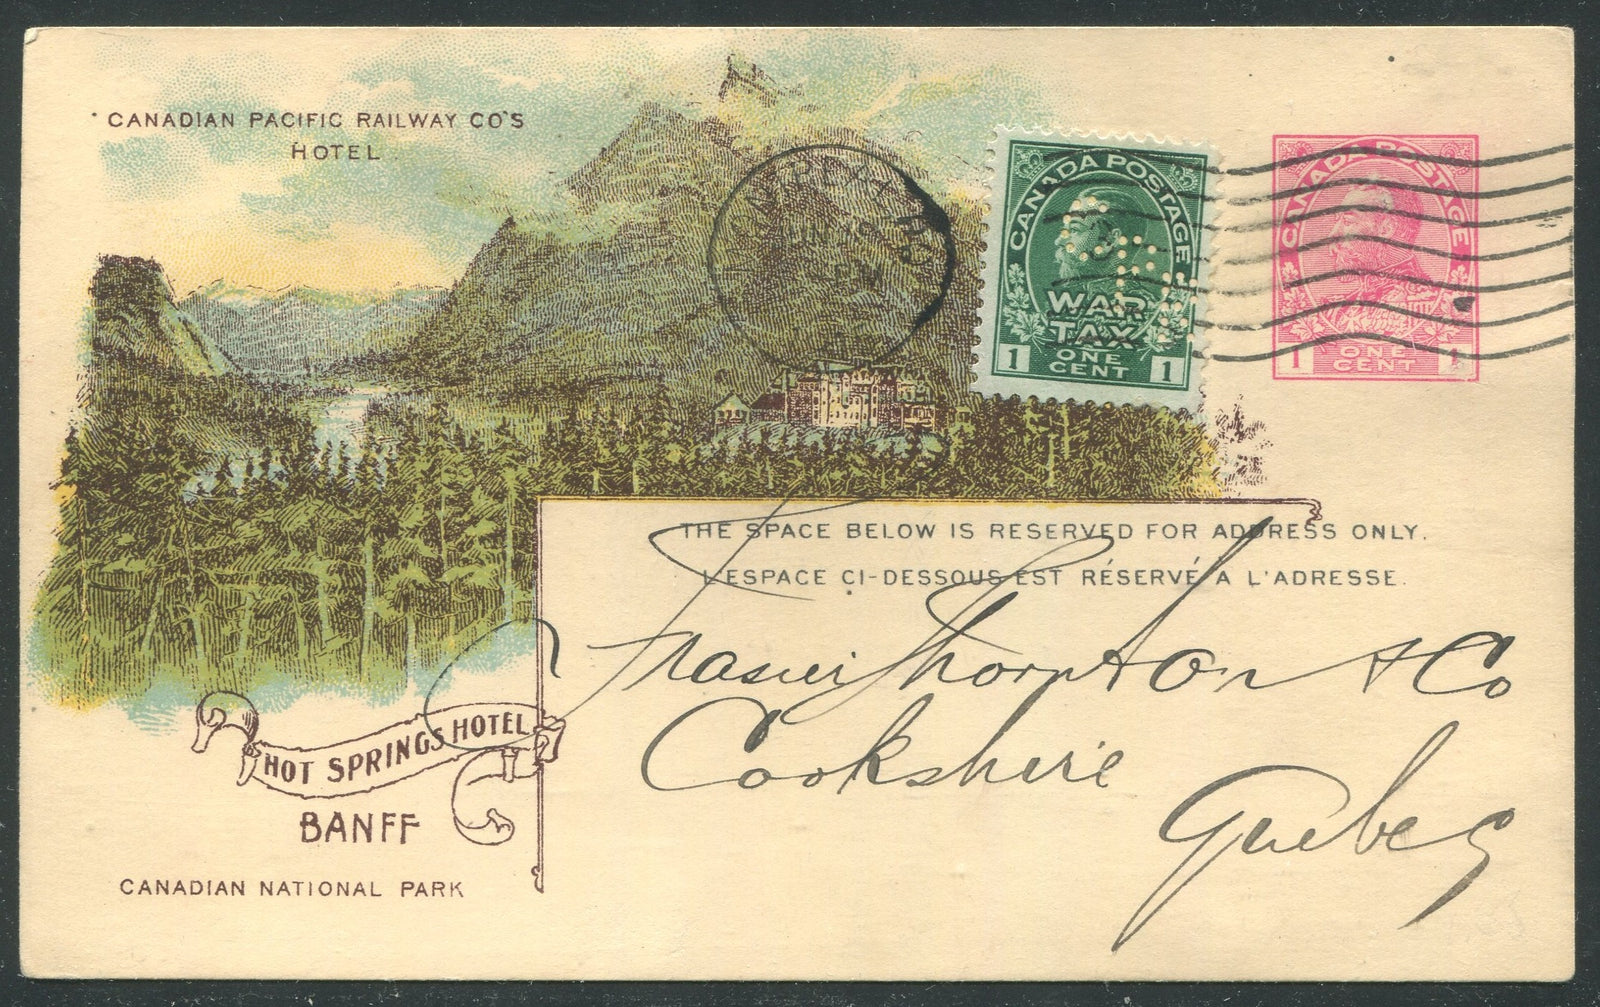 CANADIAN PACIFIC RAILWAY CO'S
HOTEL
CANADA POSTAGE
WAR
TAX
1 ONE CENT 1
CANADA POSTAGE
1 ONE CENT 1
PM
THE SPACE BELOW IS RESERVED FOR ADDRESS ONLY.
L'ESPACE CI-DESSOUS EST RÉSERVÉ A L'ADRESSE.
Fraser Thornton & Co
Cookshire
Quebec
HOT SPRINGS HOTEL
BANFF
CANADIAN NATIONAL PARK